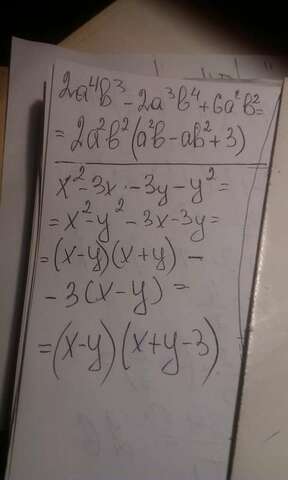 2a⁴b³ - 2a³b⁴ + 6a²b² =
= 2a²b²(a²b - ab² + 3)
x² - 3x - 3y - y² =
= x² - y² - 3x - 3y =
= (x-y)(x+y) -
- 3(x-y) =
= (x-y)(x+y-3)